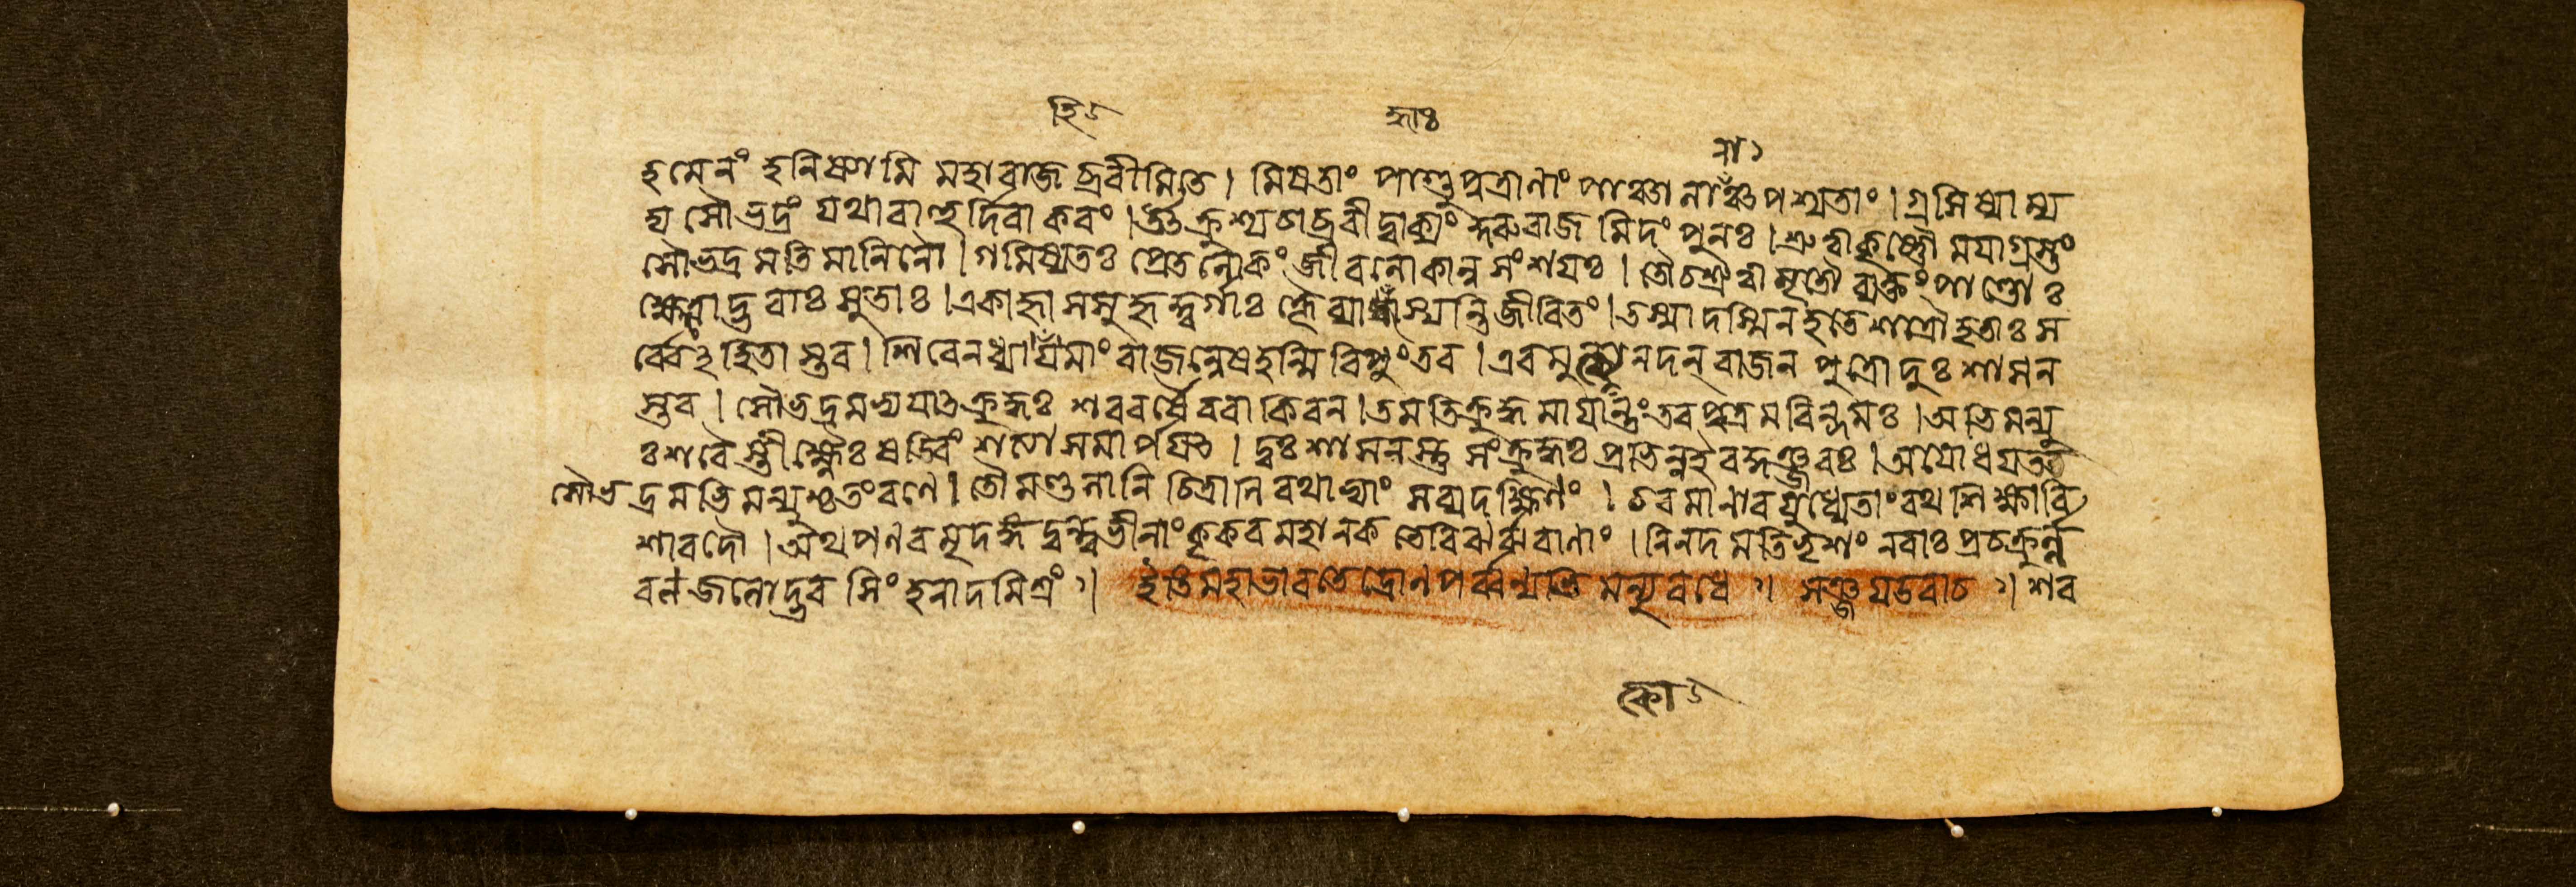 হি৴
হ্যাঃ
লা১
হমেনং হনিষ্যামি মহারাজ ব্রবীমিতে। মিষতাং পাণ্ডুপুত্রানাং পাঞ্চালানাঁঞ্চপশ্যতাং। গ্রসিষ্যাম্য
দ্য সৌভদ্রং যথারাহুর্দিবাকরং। উৎক্রুশ্যচাব্রবীদ্বাক্যং কুরুরাজমিদং পুনঃ। শ্রুত্বাকৃষ্ণৌ ময়াগ্রস্তং
সৌভদ্রমতিমানিনৌ। গমিষ্যতঃ প্রেতলোকং জীবলোকান্ন সংশয়ঃ। তৌচশ্রুত্বামৃতৌ ব্যক্তং পাণ্ডোঃ
ক্ষেত্রোদ্ভবাঃ সুতাঃ। একাহ্না সসুহৃদ্বর্গাঃ ক্লৈব্যাদ্ধাস্যন্তি জীবিতং। তস্মাদস্মিন হতে শত্রৌ হতাঃ স
র্ব্বেঽহিতাস্তব। শিবেনধ্যায়মাং রাজন্নেষহন্মি রিপুংতব। এবমুক্ত্বানদন্ রাজন পুত্রো দুঃশাসন
স্তব। সৌভদ্রমভ্যয়াৎক্রুদ্ধঃ শরবর্ষৈরবাকিরন। তমতিক্রুদ্ধমায়ান্তং তবপুত্রমরিন্দমঃ। অভিমন্যু
ঃ শরৈস্তীক্ষ্ণৈঃ ষড্বিংশত্যা সমার্পয়ৎ। দুঃশাসনস্তু সংক্রুদ্ধঃ প্রভিন্নইবকুঞ্জরঃ। অয়োধয়ত
সৌভদ্রমভিমন্যুশ্চতংরণে। তৌমণ্ডলানি চিত্রানিরথাভ্যাং সব্যদক্ষিণং। চরমাণাবয়ুধ্যেতাং রথশিক্ষাবি
শারদৌ। অথপণবমৃদঙ্গদুন্দুভীনাং কৃকরমহানকভেরিঝর্ঝরাণাং। নিনদমতিভৃশং নরাঃ প্রচক্রুর্ল্ল
বণজলোদ্ভবসিংহনাদমিশ্রং॥ ইতিমহাভারতেদ্রোণপর্ব্বন্যভিমন্যুবধে॥ সঞ্জয়উবাচ॥ শর
কো৴